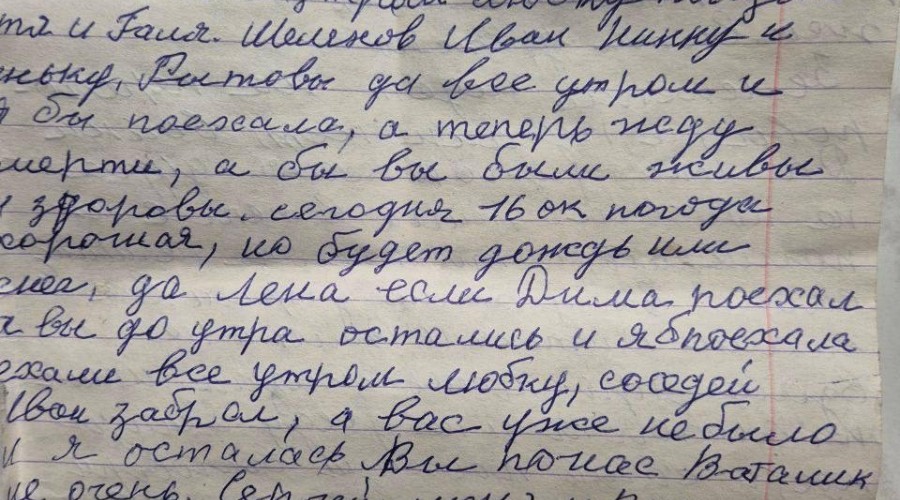 и Галя. Шеленов Иван Нинку и
Рытовы да все утром и
бы поехала, а теперь жду
мерти, а бы вы были живы
здоровы. сегодня 16 ок погода
хорошая, но будет дождь или
снег, да Лена если Дима поехал
вы до утра остались и я б поехала
ехали все утром Любку, соседей
Иван забрал, а вас уже небыло
и я осталась Вы
очень.